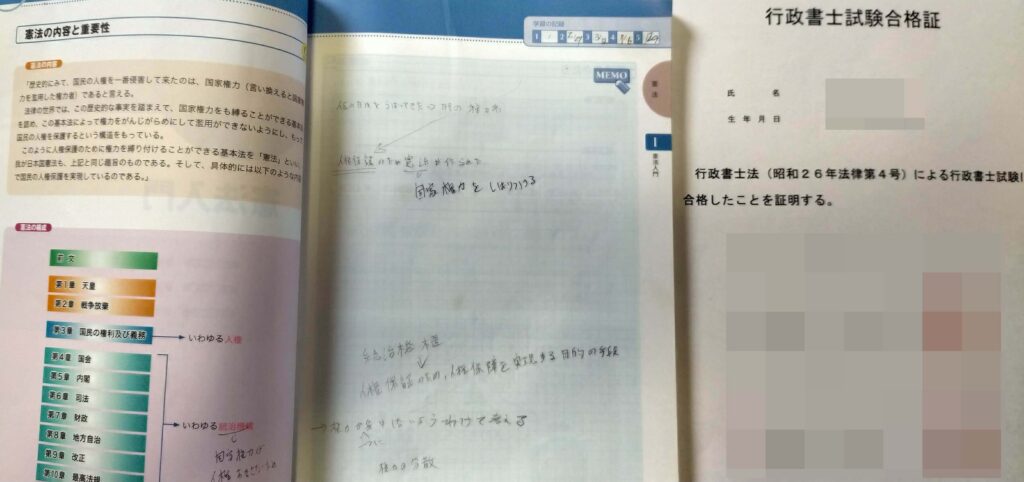 憲法の内容と重要性
憲法の内容
「歴史的にみて、国民の人権を一番侵害して来たのは、国家権力（言い換えると国家権
力を濫用した権力者）であると言える。
法律の世界では、この歴史的な事実を踏まえて、国家権力をも縛ることができる基本法
を認め、この基本法によって権力をがんじがらめにして濫用ができないようにし、もって
国民の人権を保護するという構造をもっている。
このように人権保護のために権力を縛り付けることができる基本法を「憲法」といい、
我が日本国憲法も、上記と同じ趣旨のものである。そして、具体的には以下のような内容
で国民の人権保護を実現しているのである。」
憲法の構成
前文
第1章 天皇
第2章 戦争放棄
第3章 国民の権利及び義務
いわゆる人権
第4章 国会
第5章 内閣
第6章 司法
第7章 財政
第8章 地方自治
第9章 改正
第10章 最高法規
いわゆる統治機構
学習の記録
1 2 3 4 5
MEMO
憲法
1
憲法入門
国家権力をしばりつける
統治機構
人権保証のため、人権保障を実現する目的の手段
権力の分散
行政書士試験合格証
氏名
生年月日
行政書士法（昭和26年法律第4号）による行政書士試験
合格したことを証明する。